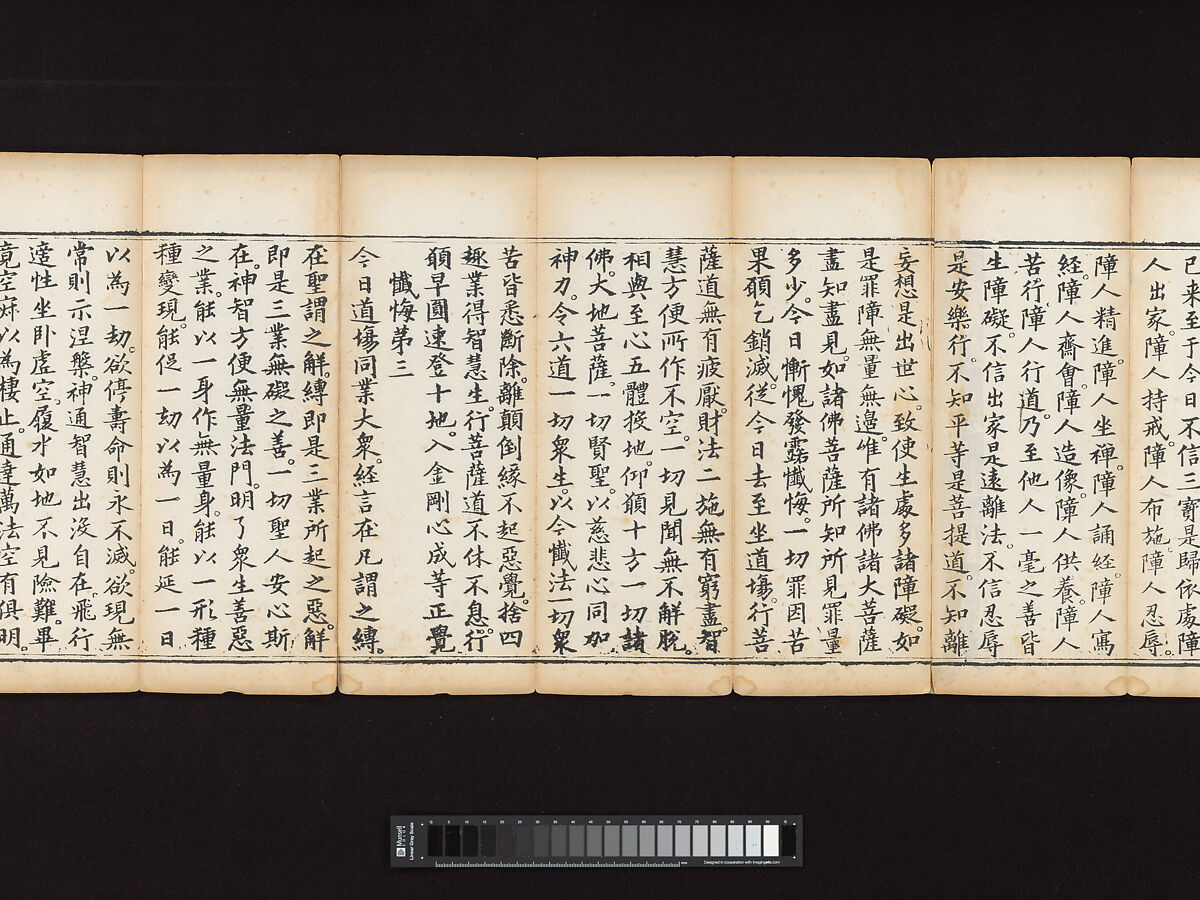 已来至于今日不信三寶是歸依處障
人出家。障人持戒。障人布施。障人忍辱。
障人精進。障人坐禪障人誦經。障人寫
經。障人齋會。障人造像。障人供養。障人
苦行障人行道。乃至他人一毫之善皆
生障礙。不信出家是遠離法不信忍辱
是安樂行。不知平等是菩提道。不知離
妄想是出世心。致使生處多諸障礙。如
是罪障無量無邊。唯有諸佛諸大菩薩
盡知盡見。如諸佛菩薩所知所見罪量
多少。今日慚愧發露懺悔。一切罪因苦
果願乞銷滅。從今日去至坐道場。行菩
薩道無有疲厭。財法二施無有窮盡。智
慧方便所作不空。一切見聞無不解脫。
相與至心五體投地。仰願十方一切諸
佛。大地菩薩。一切賢聖。以慈悲心同加
神力。令六道一切衆生。以今懺法一切衆
苦皆悉斷除。離顛倒緣不起惡覺。捨四
趣業得智慧生。行菩薩道不休不息。行
願早圓速登十地。入金剛心成等正覺
懺悔第三
今日道場同業大衆。經言在凡謂之縛。
在聖謂之解。縛即是三業所起之惡。解
即是三業無礙之善。一切聖人安心斯
在。神智方便無量法門。明了衆生善惡
之業。能以一身作無量身。能以一形種
種變現。能促一劫以為一日。能延一日
以為一劫。欲停壽命則永不滅。欲現無
常則示涅槃。神通智慧出沒自在。飛行
適性坐卧虛空。履水如地不見險難。畢
竟空寂以為棲止。通達萬法空有俱明。
Munsell
COLOR
Linear Gray Scale
0 5 10 15 20 25 30 35 40 45 50 55 60 65 70 75 80 85 90 95
mm
Designed in cooperation with imagingetc.com